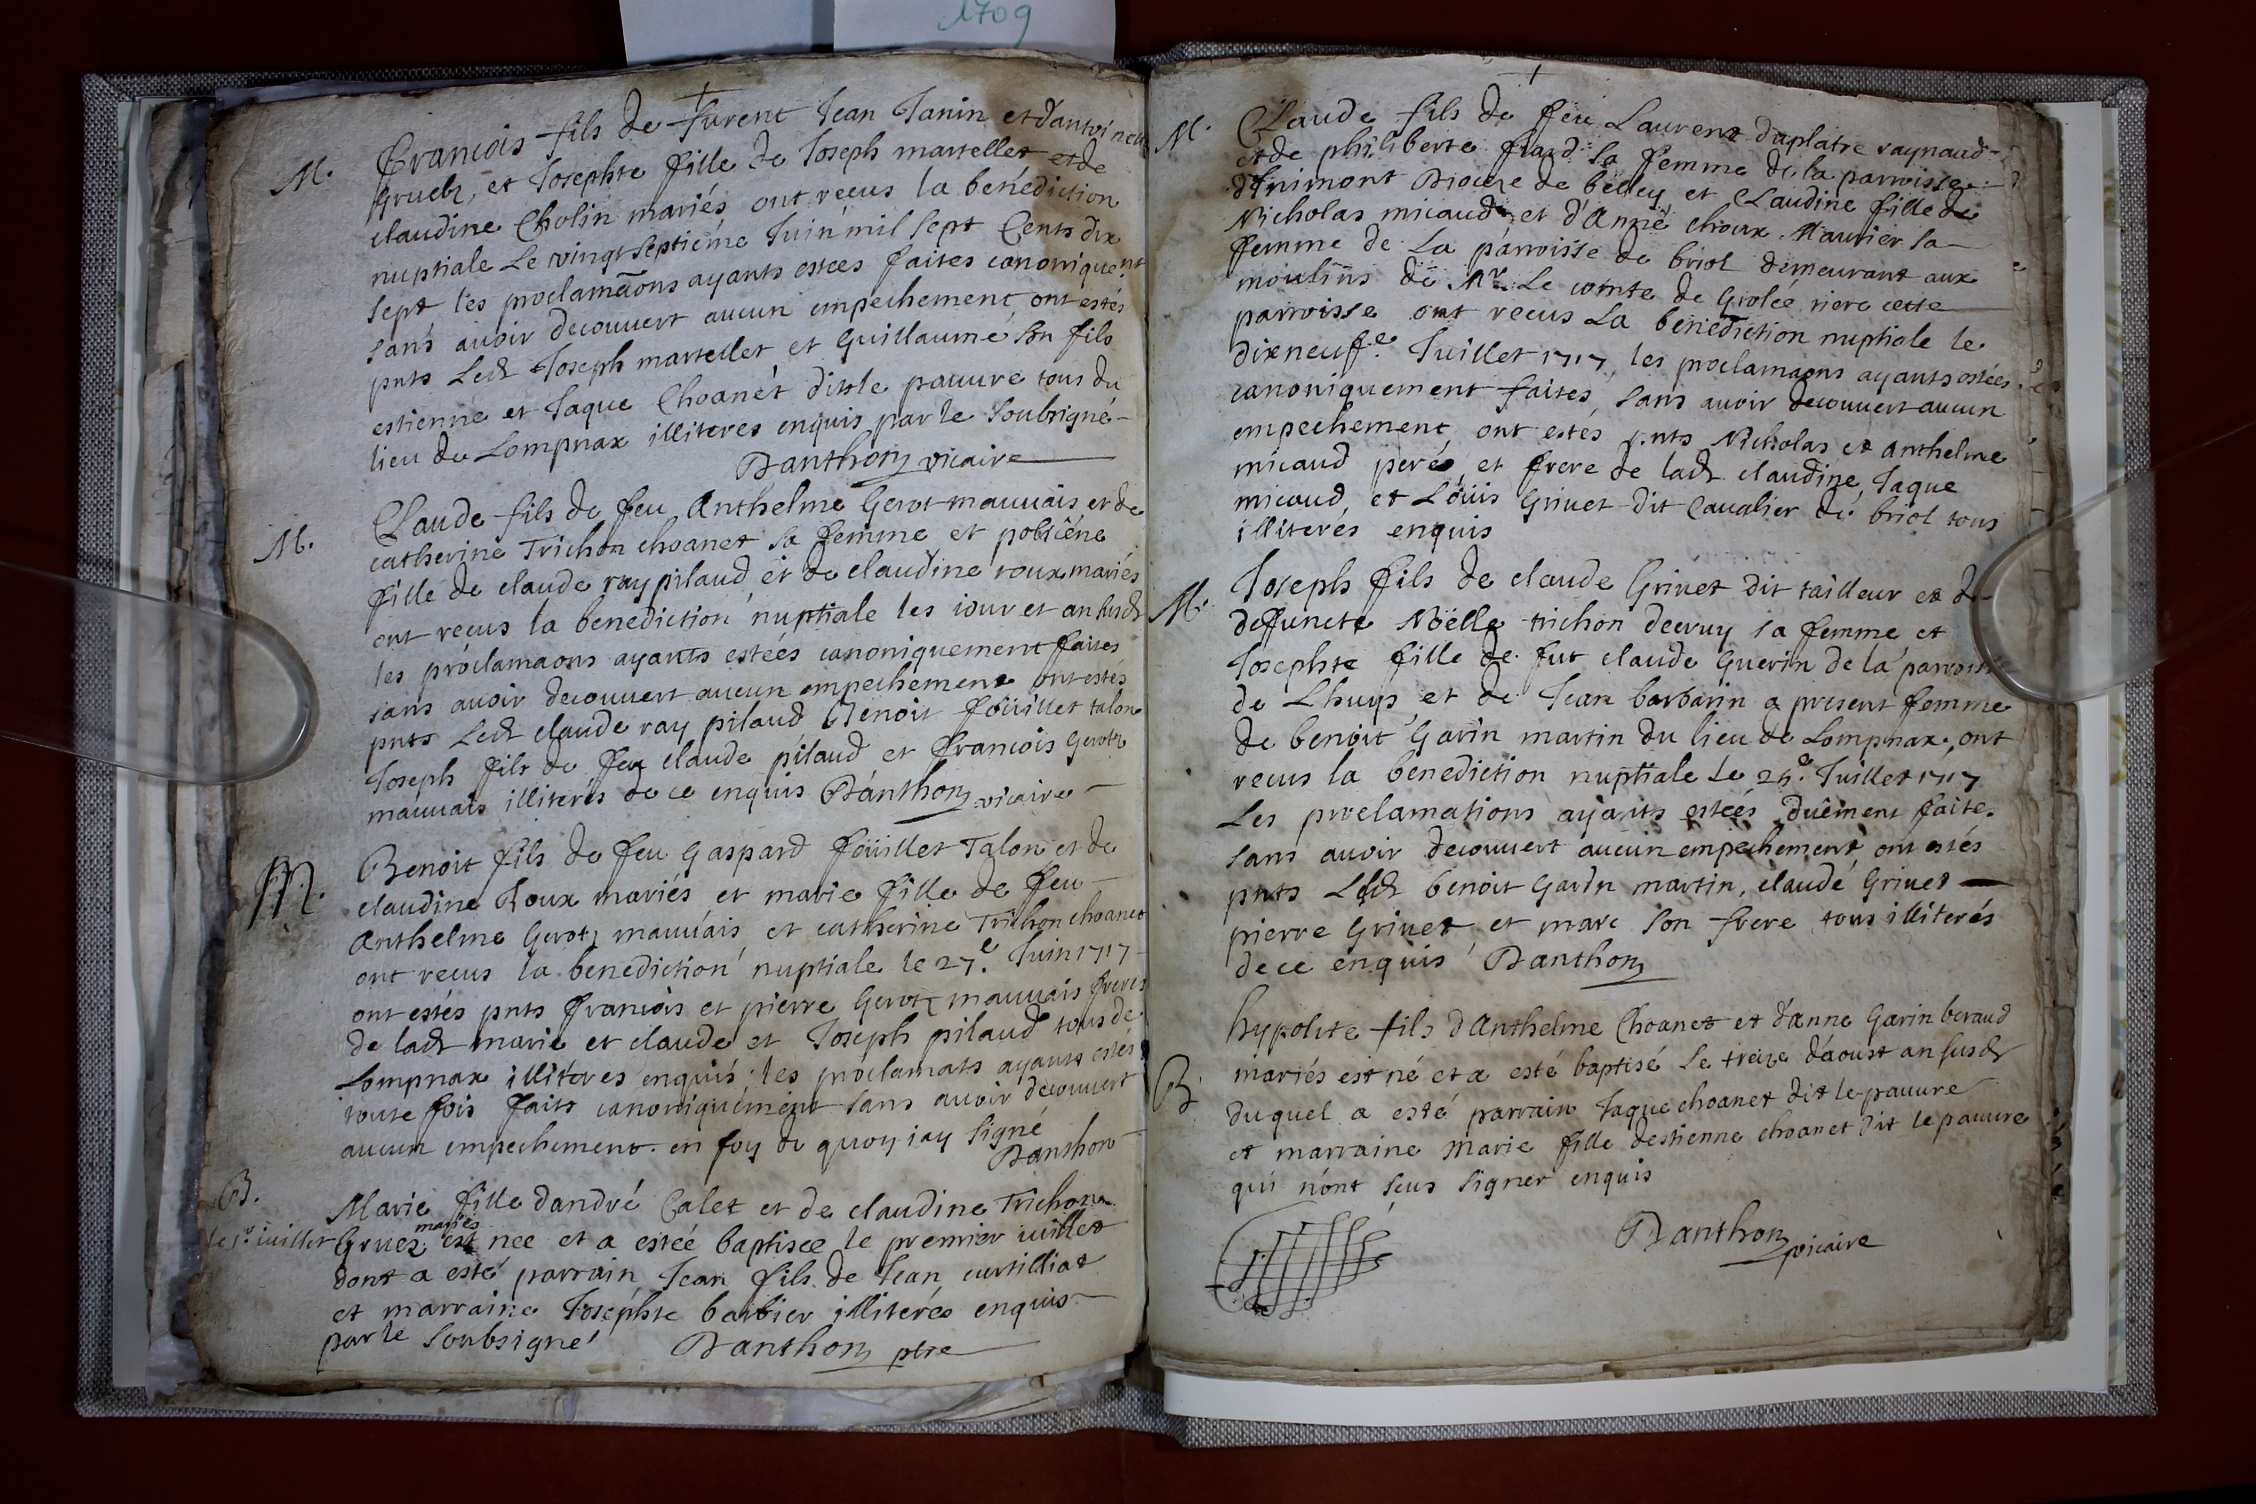 1709
M.
Francois fils de furent Jean Janin et d'antoinette
gruel, et Josephte fille de Joseph martellet et de
claudine Cholin mariés ont reçus la benédiction
nuptiale Le vingt septiéme Juin mil sept Cents dix
sept les proclamãons ayants estees faites canoniquent
sans avoir decouvert aucun empechement, ont estés
pnts Ledt Joseph martellet et Guillaume son fils
estienne et Jaque Choanet dit le pauvre tous du
lieu de Lompnax illiteres enquis par le Soubsigné
Danthon vicaire
M.
Claude fils de feu Anthelme Gerot mauvais et de
catherine Trichon choanet sa femme et poliçéne
fille de claude ray pilaud et de claudine roux mariés
ont reçus la benediction nuptiale les iour et an susdt
les proclamaons ayants esteés canoniquement faites
sans avoir decouvert aucun empechement ont estés
pnts Ledt claude ray pilaud Benoit foüillet talon
Joseph fils de feu claude pilaud et francois Gerot
mauvais illiterés de ce enquis Danthon vicaire
M.
Benoit fils de feu Gaspard foüillet Talon et de
claudine Roux mariés et marie fille de feu
Anthelme Gerot mauvais et catherine Trichon choanet
ont reçus la benediction nuptiale le 27e. Juin 1717
ont estés pnts francois et pierre Gerot mauvais freres
de ladt marie et claude et Joseph pilaud tous de
Lompnax illiteres enquis les proclamats ayants estés
toute fois faits canoniquement sans avoir decouvert
aucun empechement. en foy de quoy iay signé
Danthon
B.
le 1er iuillet
Marie fille dandré Calet et de claudine Trichon
Gruez mariés est nee et a esteé baptiseé le premier iuillet
dont a esté parrain Jean fils de Jean curtilliat
et marraine Josephte barbier illiterés enquis
par le soubsigné Danthon ptre
M.
Claude fils de feu Laurent duplatre raynaud
et de philiberte fiard sa femme de la parroisse
d'Inimont Dioceze de belley, et Claudine fille de
Nicholas micaud et d'Anne choux Maurier sa
femme de La parroisse de briol demeurant aux
moulins de Mr. Le comte de Grolée riere cette
parroisse ont reçus La benediction nuptiale le
dixneufe. Juillet 1717, les proclamaons ayants estées
canoniquement faites, sans avoir decouvert aucun
empechement, ont estés pnts Nicholas et anthelme
micaud peres et frere de ladt claudine, Jaque
micaud et Loüis Grivet dit Cavalier de briol tous
illiterés enquis
M.
Joseph fils de claude Grivet dit tailleur et de
deffuncte Noëlle trichon decruy sa femme, et
Josephte fille de fut claude Guerin de la parroisse
de Lhuys et de Jean barbarin a present femme
de benoit Garin martin du lieu de Lompnax, ont
reçus la benediction nuptiale Le 25e. Juillet 1717
Les proclamations ayants esteés duëment faites
sans avoir decouvert aucun empechement ont estés
pnts Ledt benoit Garin martin, claude Grivet
pierre Grivet et marc son frere tous illiterés
de ce enquis Danthon
B
hypolite fils dAnthelme Choanet et d'anne Garin beraud
mariés est né et a esté baptisé Le treize d'aoust an susdt
duquel a esté parrain Jaque choanet dit le pauvre
et marraine Marie fille destienne choanet dit le pauvre
qui n'ont seus signer enquis
Danthon
vicaire